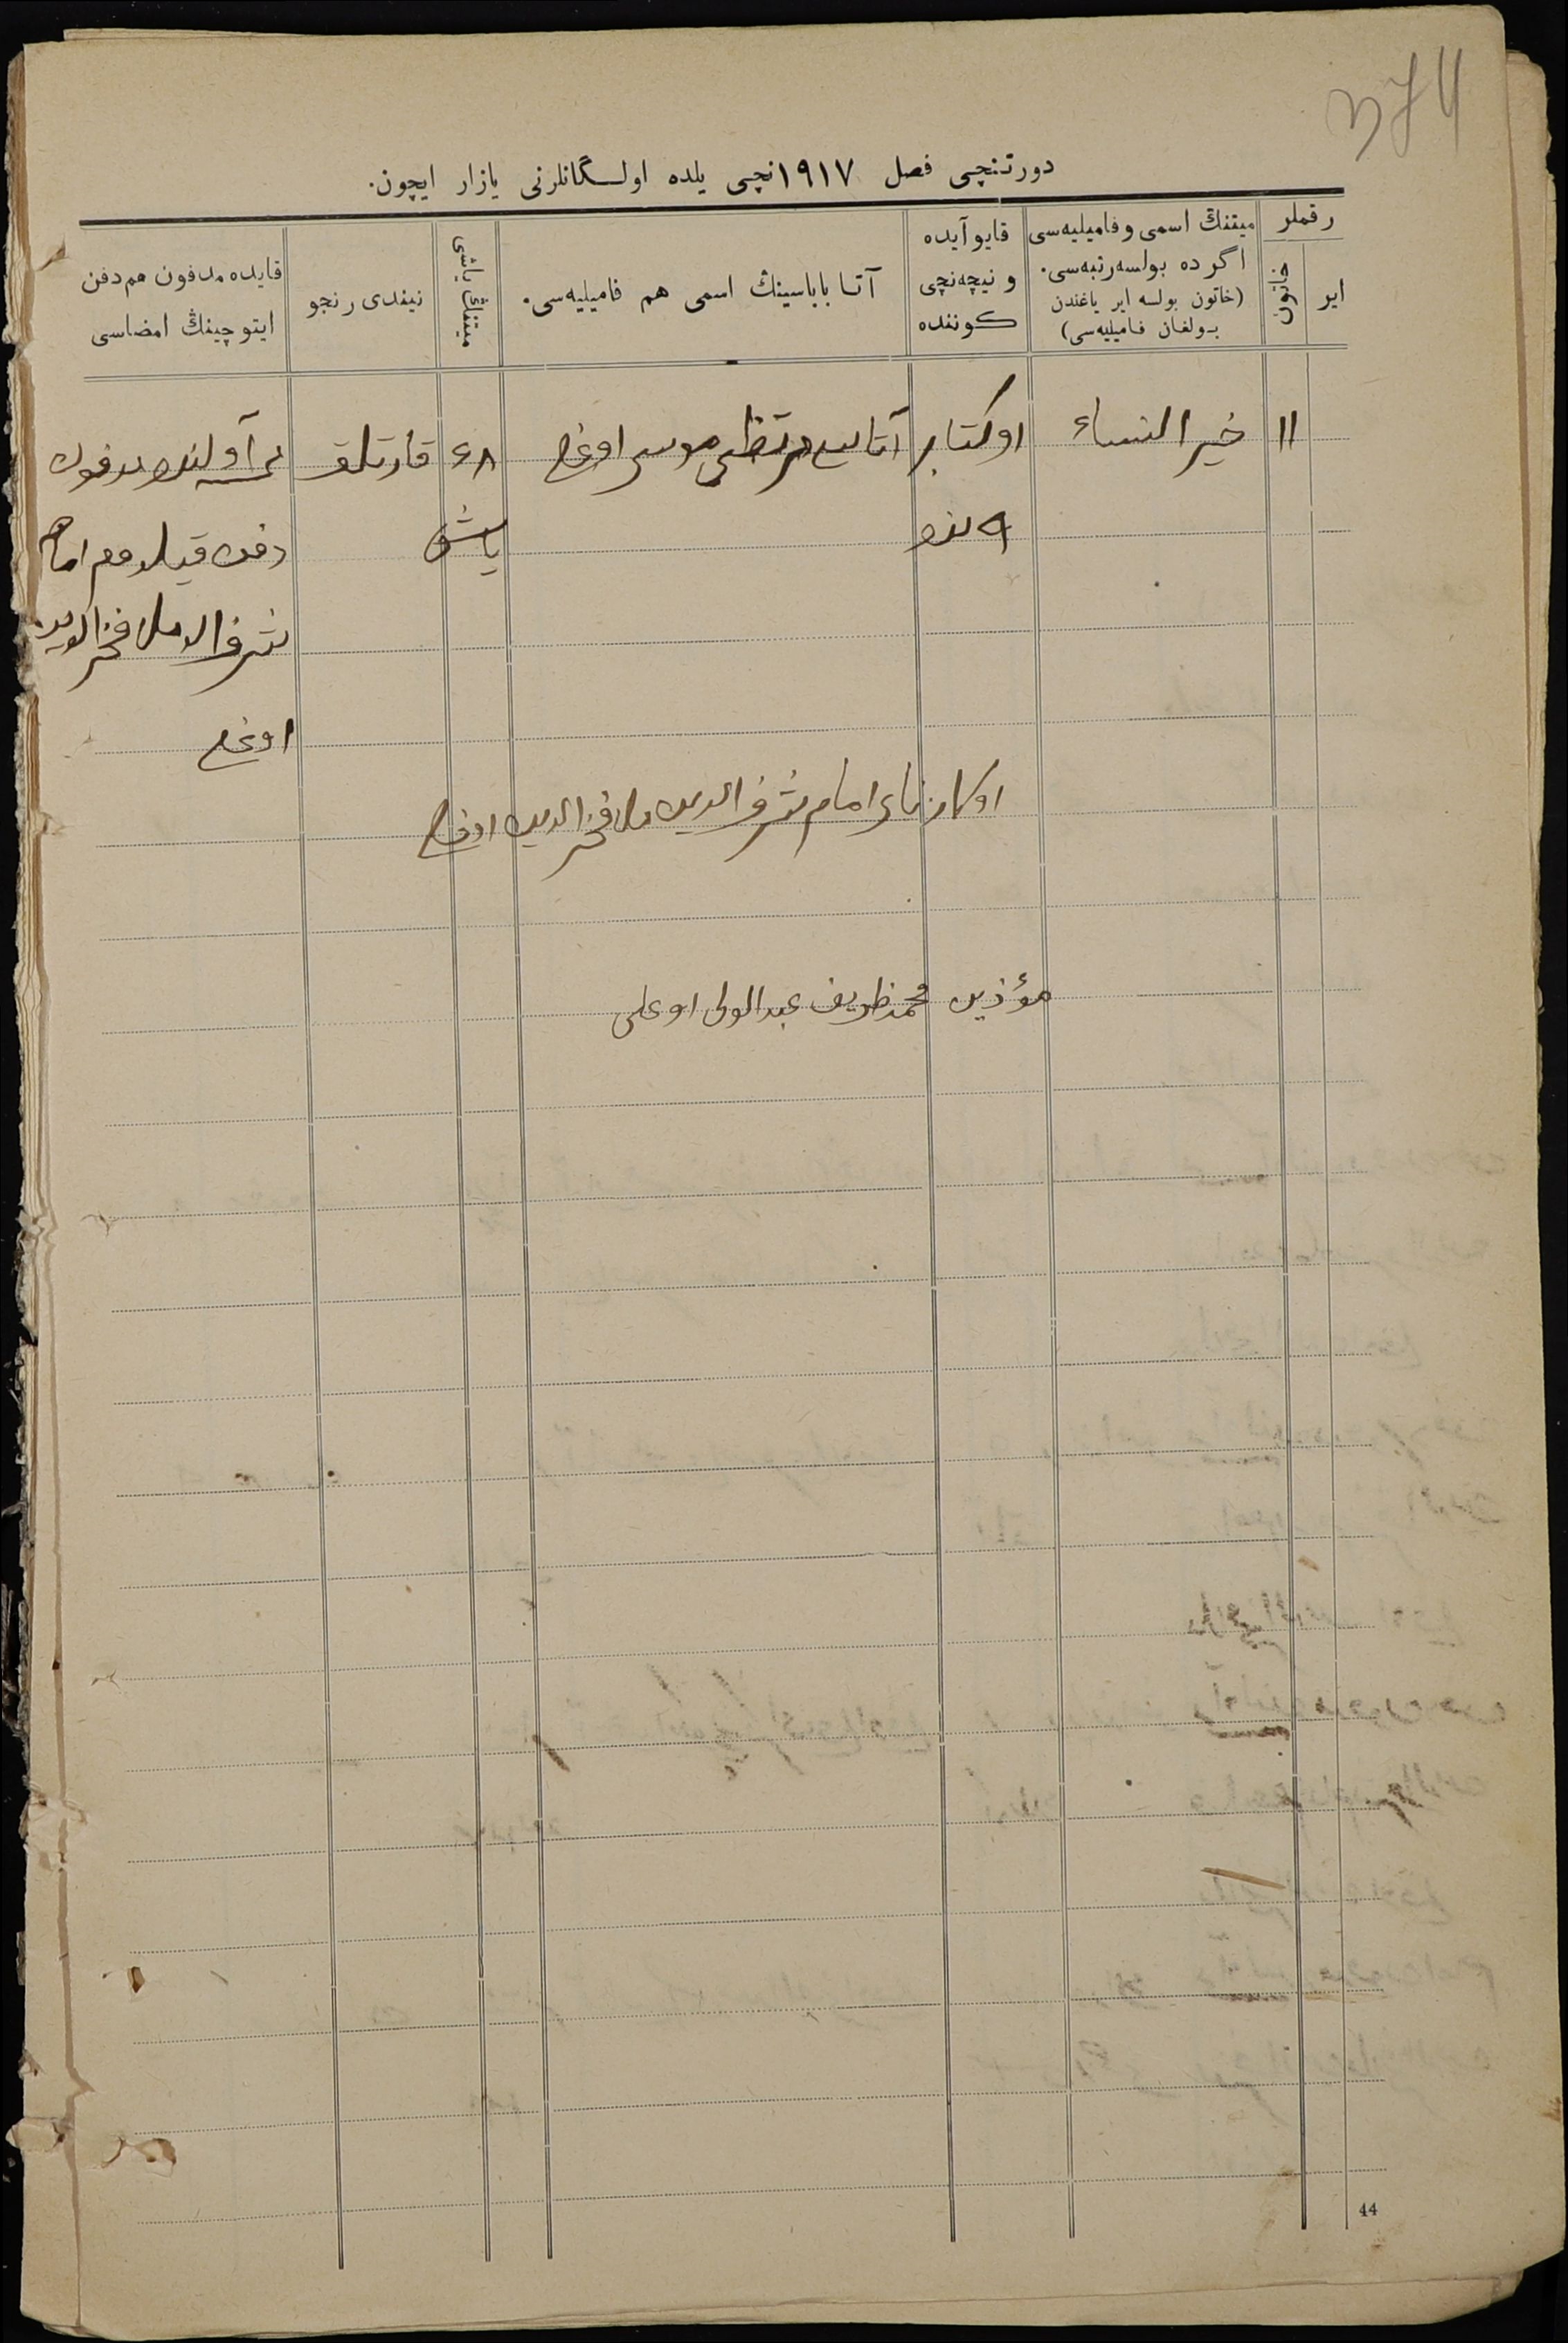 374
دورتنچی فصل ۱۹۱۷نچی یلده اولـگانلرنی یازار ایچون.
رقملر
ایر
خاتون
میتنڭ اسمی وفامیلیه‌سی
اگر ده بولسه رتبه‌سی.
(خاتون بولسه ایر یاغندن
بـولغان فـامیلیه‌سی)
قایو آیده
و نیچه‌نچی
کـوننده
آتـا بابـاسینڭ اسمی هم فامیلیه‌سی.
میتنڭ یاشی
نیندی رنجو
قایده مدفون هم دفن
ایتو چینڭ امضاسی
۱۱ خیر النساء اوکتابر آتاسی مرتظی موسی اوغلی ۶۸ قارتلق آولنده مدفون
۹ نده یاش دفن قیلدم امام
شرف الدین ملا فخرالدین
اوغلی
امام شرف الدین ملا فخر الدین اوغلی
مؤذین محمد ظریف عبد الولی اوغلی
44